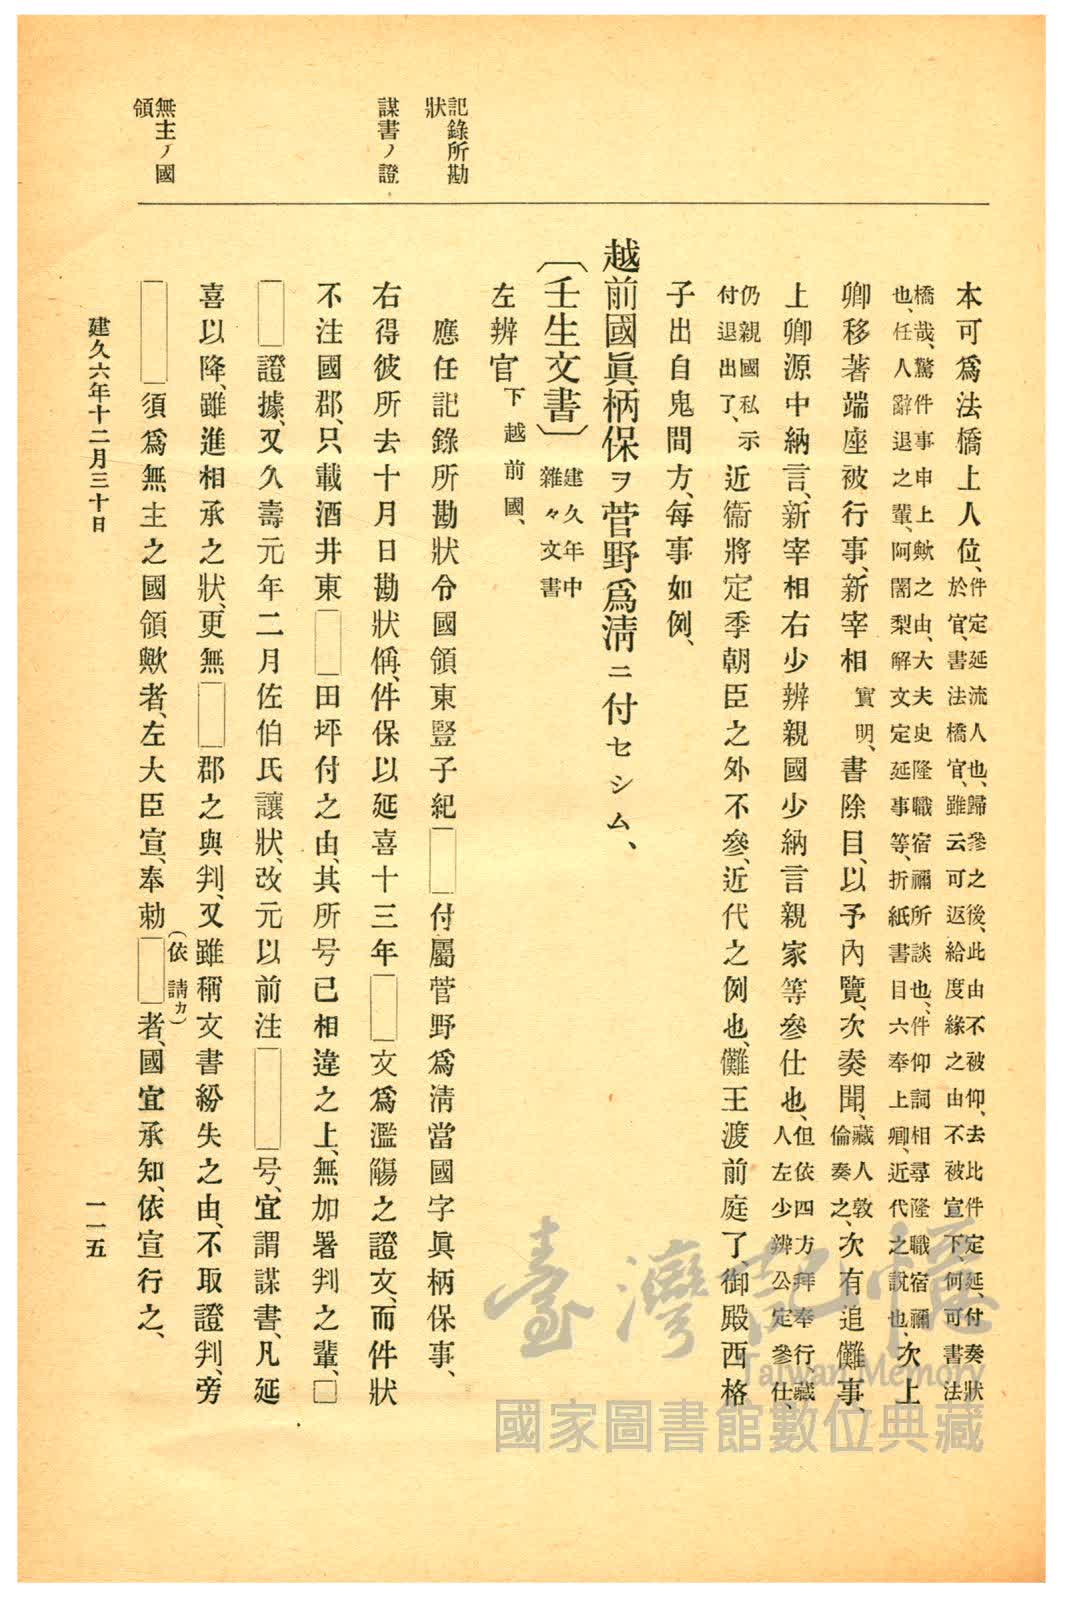 記錄所勘
狀
謀書ノ證
無主ノ國
領
本可爲法橋上人位、件定延流人也、歸參之後、此由不被仰、去比件定延、付奏狀
於官、書法橋官、雖云可返給度緣之由不被宣下、何可書法
橋哉、驚件事申上歟之由、大夫史隆職宿禰所談也、件仰詞相尋隆職宿禰
也、任人辭退之輩、阿闍梨解文定延事等、折紙書目六奉上卿、近代之說也、次上
卿移著端座被行事、新宰相實明、書除目、以予內覽、次奏聞、藏人敦
倫奏之、次有追儺事、
上卿源中納言、新宰相右少辨親國少納言親家等參仕也、但依四方拜奉行藏
人左少辨公定參仕、
仍親國私示
付退出了、近衞將定季朝臣之外不參、近代之例也、儺王渡前庭了、御殿西格
子出自鬼間方、每事如例、
越前國眞柄保ヲ菅野爲淸ニ付セシム、
〔壬生文書〕建久年中
雜々文書
左辨官下越前國、
應任記錄所勘狀令國領東豎子紀□付屬菅野爲淸當國字眞柄保事、
右得彼所去十月日勘狀偁、件保以延喜十三年□文爲濫觴之證文、而件狀
不注國郡、只載酒井東□田坪付之由、其所号已相違之上、無加署判之輩、□
□證據、又久壽元年二月佐伯氏讓狀、改元以前注□号、宜謂謀書、凡延
喜以降、雖進相承之狀、更無□郡之與判、又雖稱文書紛失之由、不取證判、旁
□須爲無主之國領歟者、左大臣宣、奉勅□(依請カ)者、國宜承知、依宣行之、
建久六年十二月三十日
一一五
臺灣記憶
Taiwan Memory
國家圖書館數位典藏